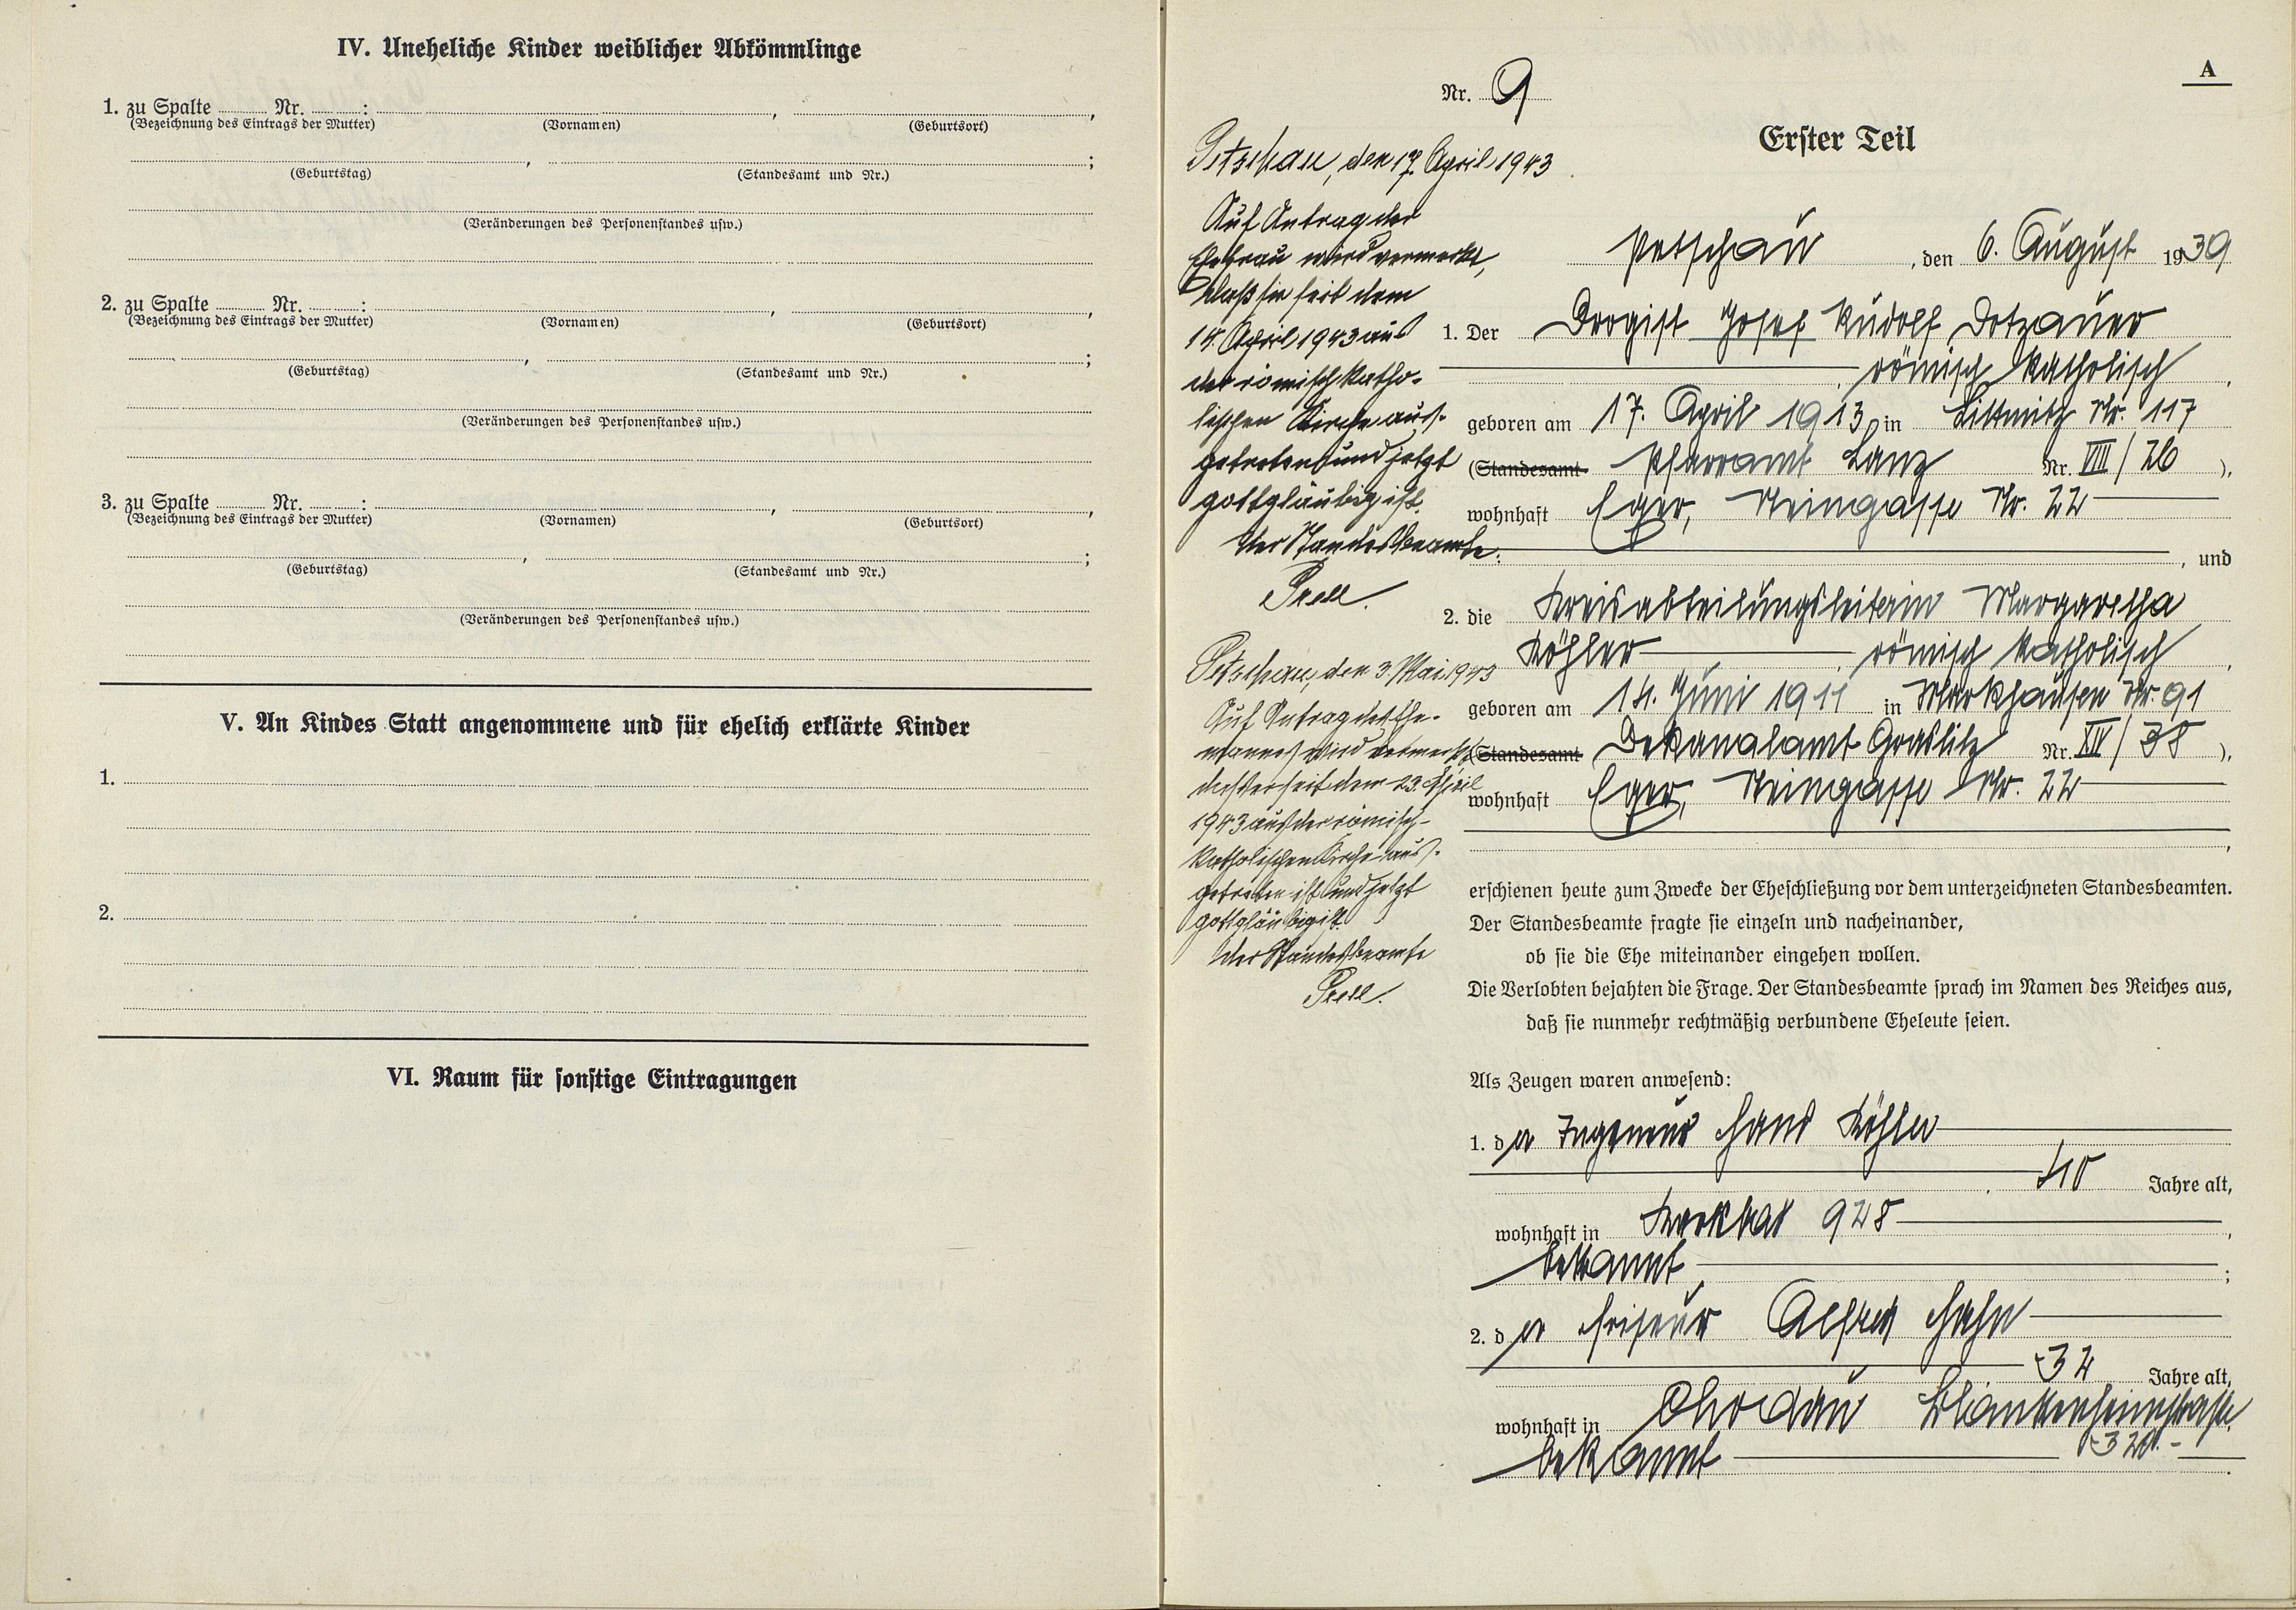 IV. Uneheliche Kinder weiblicher Abkömmlinge
1. zu Spalte Nr. : , ,
(Bezeichnung des Eintrags der Mutter) (Vornamen) (Geburtsort)
, ;
(Geburtstag) (Standesamt und Nr.)
(Veränderungen des Personenstandes usw.)
2. zu Spalte Nr. : , ,
(Bezeichnung des Eintrags der Mutter) (Vornamen) (Geburtsort)
, ;
(Geburtstag) (Standesamt und Nr.)
(Veränderungen des Personenstandes usw.)
3. zu Spalte Nr. : , ,
(Bezeichnung des Eintrags der Mutter) (Vornamen) (Geburtsort)
, ;
(Geburtstag) (Standesamt und Nr.)
(Veränderungen des Personenstandes usw.)
V. An Kindes Statt angenommene und für ehelich erklärte Kinder
1.
2.
VI. Raum für sonstige Eintragungen
A
Nr. 9
Erster Teil
Petschau, den 17. April 1943
Auf Antrag der
Ehefrau wird vermerkt,
daß sie seit dem
14. April 1943 aus
der römisch katho-
lischen Kirche aus-
getreten und jetzt
gottgläubig ist.
Der Standesbeamte:
Prell.
Petschau, den 3. Mai 1943
Auf Antrag des Ehe-
mannes wird vermerkt,
daß er seit dem 23. April
1943 aus der römisch-
katholischen Kirche aus-
getreten ist und jetzt
gottgläubig ist.
Der Standesbeamte
Prell.
Petschau, den 6. August 1939
1. Der Drogist Josef Rudolf Dotzauer
, römisch katholisch,
geboren am 17. April 1913, in Littmitz Nr. 117
(Standesamt Pfarramt Lanz Nr. VIII/26),
wohnhaft Eger, Steingasse Nr. 22
, und
2. die Kreisabteilungsleiterin Margaretha
Köhler, römisch katholisch,
geboren am 14. Juni 1911 in Markhausen Nr. 91
(Standesamt Dekanalamt Graslitz Nr. XII/38),
wohnhaft Eger, Steingasse Nr. 22
,
erschienen heute zum Zwecke der Eheschließung vor dem unterzeichneten Standesbeamten.
Der Standesbeamte fragte sie einzeln und nacheinander,
ob sie die Ehe miteinander eingehen wollen.
Die Verlobten bejahten die Frage. Der Standesbeamte sprach im Namen des Reiches aus,
daß sie nunmehr rechtmäßig verbundene Eheleute seien.
Als Zeugen waren anwesend:
1. der Ingenieur Hans Köhler
, 40 Jahre alt,
wohnhaft in 928,
bekannt;
2. der Friseur Alfred Hahn
32 Jahre alt,
wohnhaft in Chodau
320.-
bekannt.